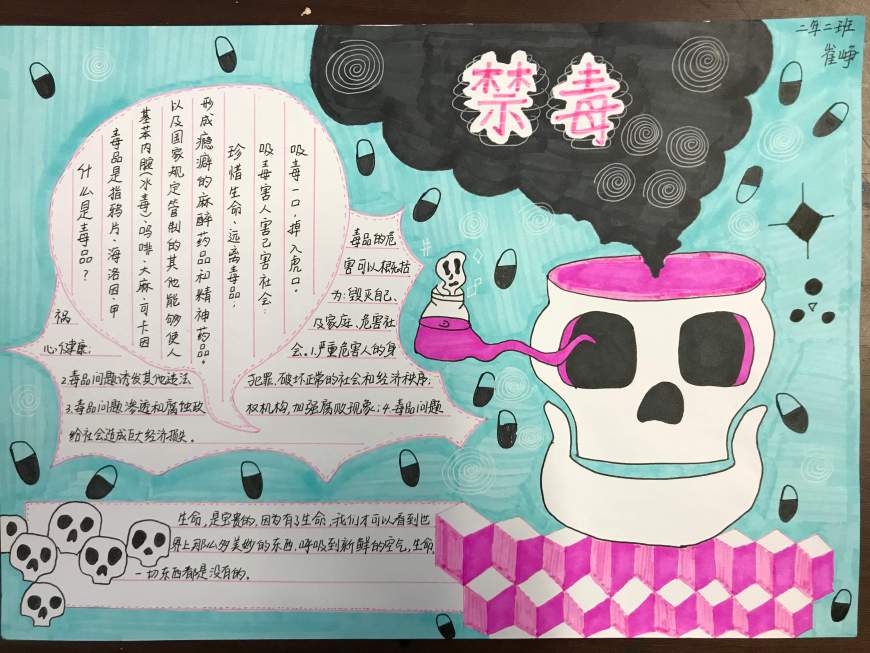 二年二班
崔峥
禁毒
什么是毒品？
毒品是指鸦片、海洛因、甲
基苯内胺(水毒)、吗啡、大麻、可卡因
以及国家规定管制的其他能够使人
形成瘾癖的麻醉药品和精神药品。
珍惜生命、远离毒品；
吸毒害人害己害社会：
吸毒一口，掉入虎口。
毒品的危
害可以概括
为：毁灭自己、
祸
及家庭、危害社
会。1.严重危害人的身
心健康；
2.毒品问题诱发其他违法 犯罪、破坏正常的社会和经济秩序；
3.毒品问题渗透和腐蚀政 权机构，加强腐败现象；4.毒品问题
给社会造成巨大经济损失。
生命，是宝贵的，因为有了生命，我们才可以看到世
界上那么多美妙的东西，呼吸到新鲜的空气，生命，
一切东西都是没有的。